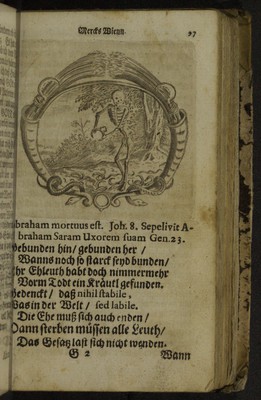 Mercks Wienn. 97
braham mortuus est. Joh. 8. Sepelivit A-
braham Saram Uxorem suam Gen. 23.
Gebunden hin / gebunden her /
Wanns noch so starck seyd bunden /
Ihr Ehleuth habt doch nimmermehr
Vorm Todt ein Kräutl gefunden.
Bedenckt / daß nihil stabile,
Was in der Welt / sed labile.
Die Ehe muß sich auch enden /
Dann sterben müssen alle Leuth /
Das Gesatz last sich nicht wenden.
G 2 Wann